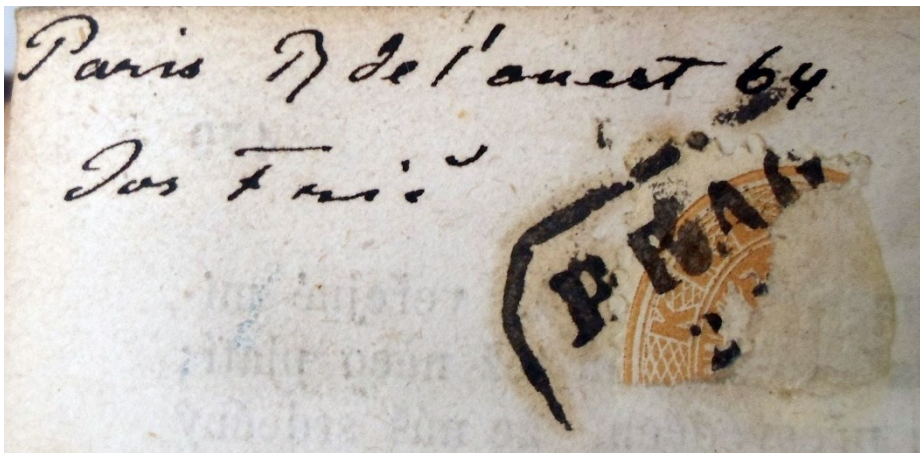 Paris R de l'ouest 64
Jos Frič
PRAG